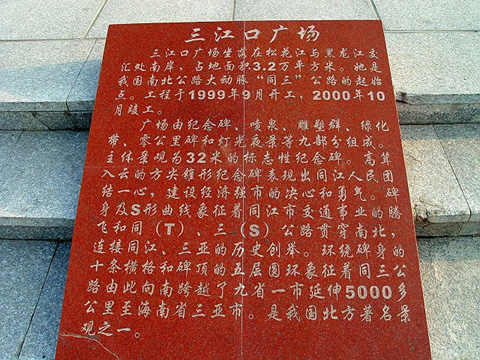 三江口广场
三江口广场坐落在松花江与黑龙江交
汇处南岸，占地面积3.2万平方米。她是
我国南北公路大动脉“同三”公路的起始
点。工程于1999年9月开工，2000年10
月竣工。
广场由纪念碑、喷泉、雕塑群、绿化
带、零公里碑和灯光夜景等九部分组成。
主体景观为32米的标志性纪念碑。高耸
入云的方尖锥形纪念碑表现出同江人民团
结一心，建设经济强市的决心和勇气。碑
身及S形曲线象征着同江市交通事业的腾
飞和同（T）、三（S）公路贯穿南北，
连接同江、三亚的历史创举。环绕碑身的
十条横格和碑顶的五层圆环象征着同三公
路由此向南跨越了九省一市延伸5000多
公里至海南省三亚市。是我国北方著名景
观之一。